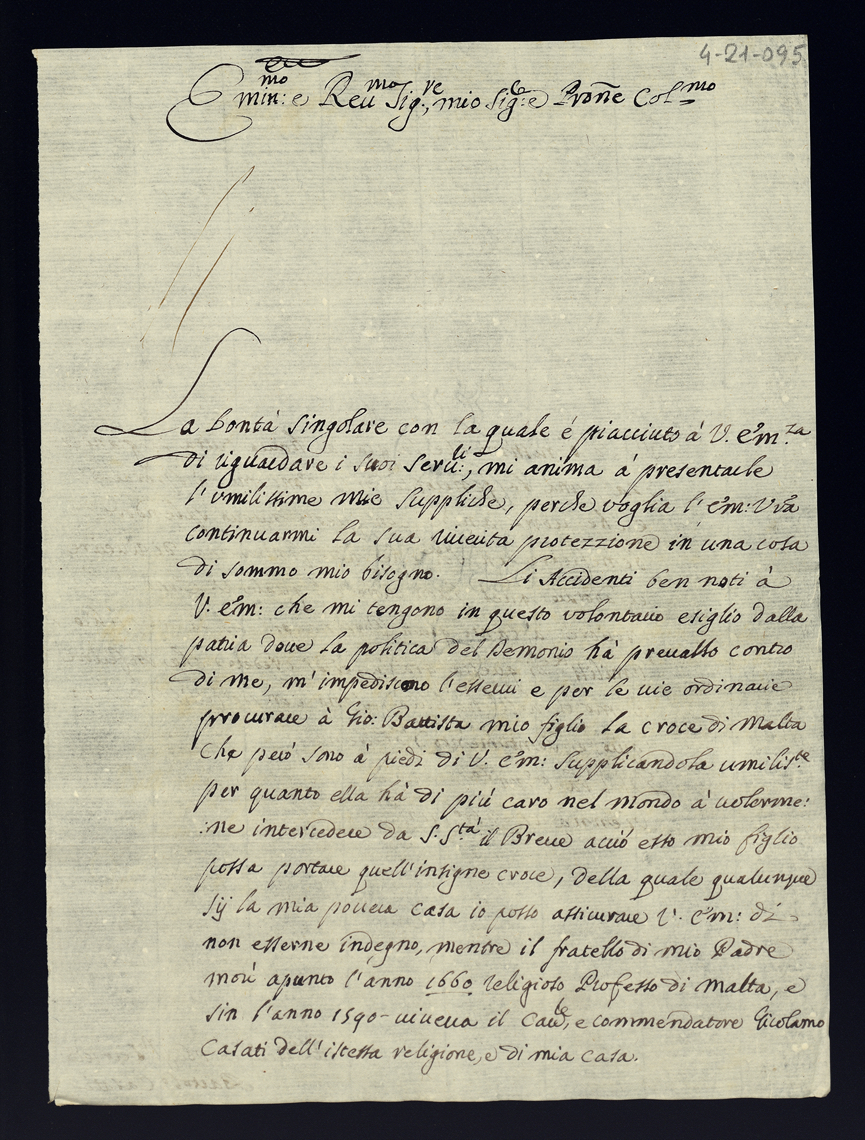 4-21-095
Emin:mo e Reumo Sig:re, mio Sig:re e Prone Colmo
La bontà singolare con la quale é piacciuto à V. Em.za
di riguardare i suoi seru.li:, mi anima à presentarle
l'umilissime mie suppliche, perche voglia l'Em: Vra
continuarmi la sua riuerita protezzione in una cosa
di sommo mio bisogno. Li Accidenti ben noti à
V. Em: che mi tengono in questo volontario esiglio dalla
patria doue la politica del Demonio hà preualso contro
di me, m'impediscono l'esserui e per le uie ordinarie
procurare à Gio: Battista mio figlio la croce di Malta
che però sono à piedi di V. Em: supplicandola umilis.te
per quanto ella hà di più caro nel mondo à uolerme:
:ne intercedere da S. S.tà il Breue acciò esso mio figlio
possa portare quell'insigne croce, della quale qualunque
sij la mia pouera casa io posso assicurare V. Em: di
non esserne indegno, mentre il fratello di mio Padre
morì apunto l'anno 1660 religioso Professo di Malta, e
sin l'anno 1590 - uiueua il Caule, e commendatore Gicolamo
Casati dell'istessa religione, e di mia casa.